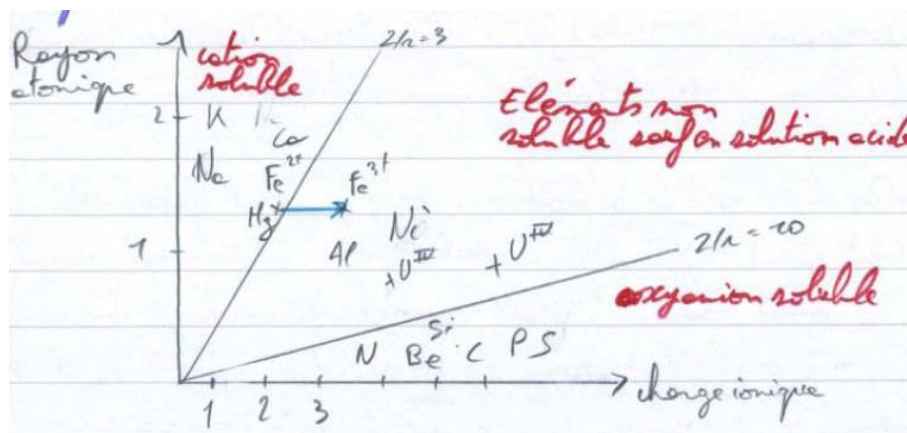 Rayon
atomique
z/r=3
cation
soluble
Eléments non
soluble sauf en solution acide
2
K
Ca
Na
Fe2+
Fe3+
Hg
1
Al
Ni
+UIV
+UIV
z/r=10
oxyanion soluble
Si
N Be C P S
1 2 3
charge ionique